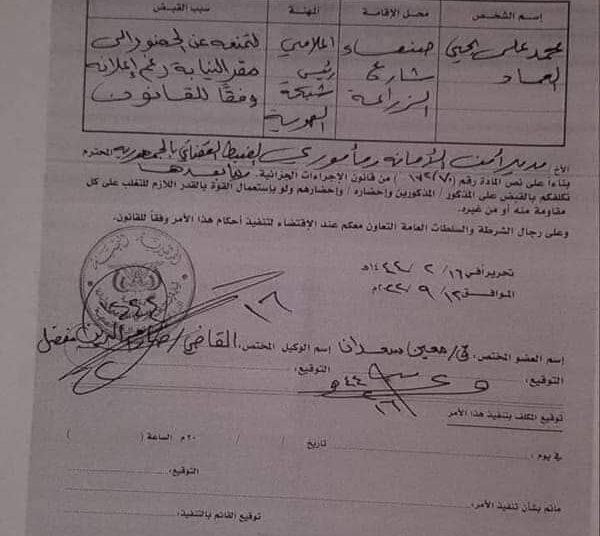 إسم الشخص
محل الإقامة
المهنة
سبب القبض
محمد علي يحيى العماد
صنعاء شارع الزراعة
اعلامي رئيس شبكة الهوية
لتمنعه عن الحضور إلى مقر النيابة رغم إعلانه وفقاً للقانون
الأخ/ مدير امن الأمانة ومأموري الضبط القضائي بالجمهورية المحترم
بناءاً على نص المادة رقم ( ) من قانون الإجراءات الجزائية.
نكلفكم بالقبض على المذكور / المذكورين وإحضاره / إحضارهم ولو بإستعمال القوة بالقدر اللازم للتغلب على كل
مقاومة منه أو من غيره.
وعلى رجال الشرطة والسلطات العامة التعاون معكم عند الإقتضاء لتنفيذ أحكام هذا الأمر وفقاً للقانون.
تحريراً في ١٦/ ٢ / ١٤٤٤هـ
الموافق ١٢/ ٩ / ٢٠٢٢م
١٦
إسم العضو المختص: ق/ معين سعدان إسم الوكيل المختص: القاضي/ صارم الدين مفضل
التوقيع: التوقيع:
توقيع المكلف بتنفيذ هذا الأمر
في يوم: تاريخ / / ٢٠م الساعة ( )
التوقيع:
ماتم بشأن تنفيذ الأمر:
توقيع القائم بالتنفيذ: